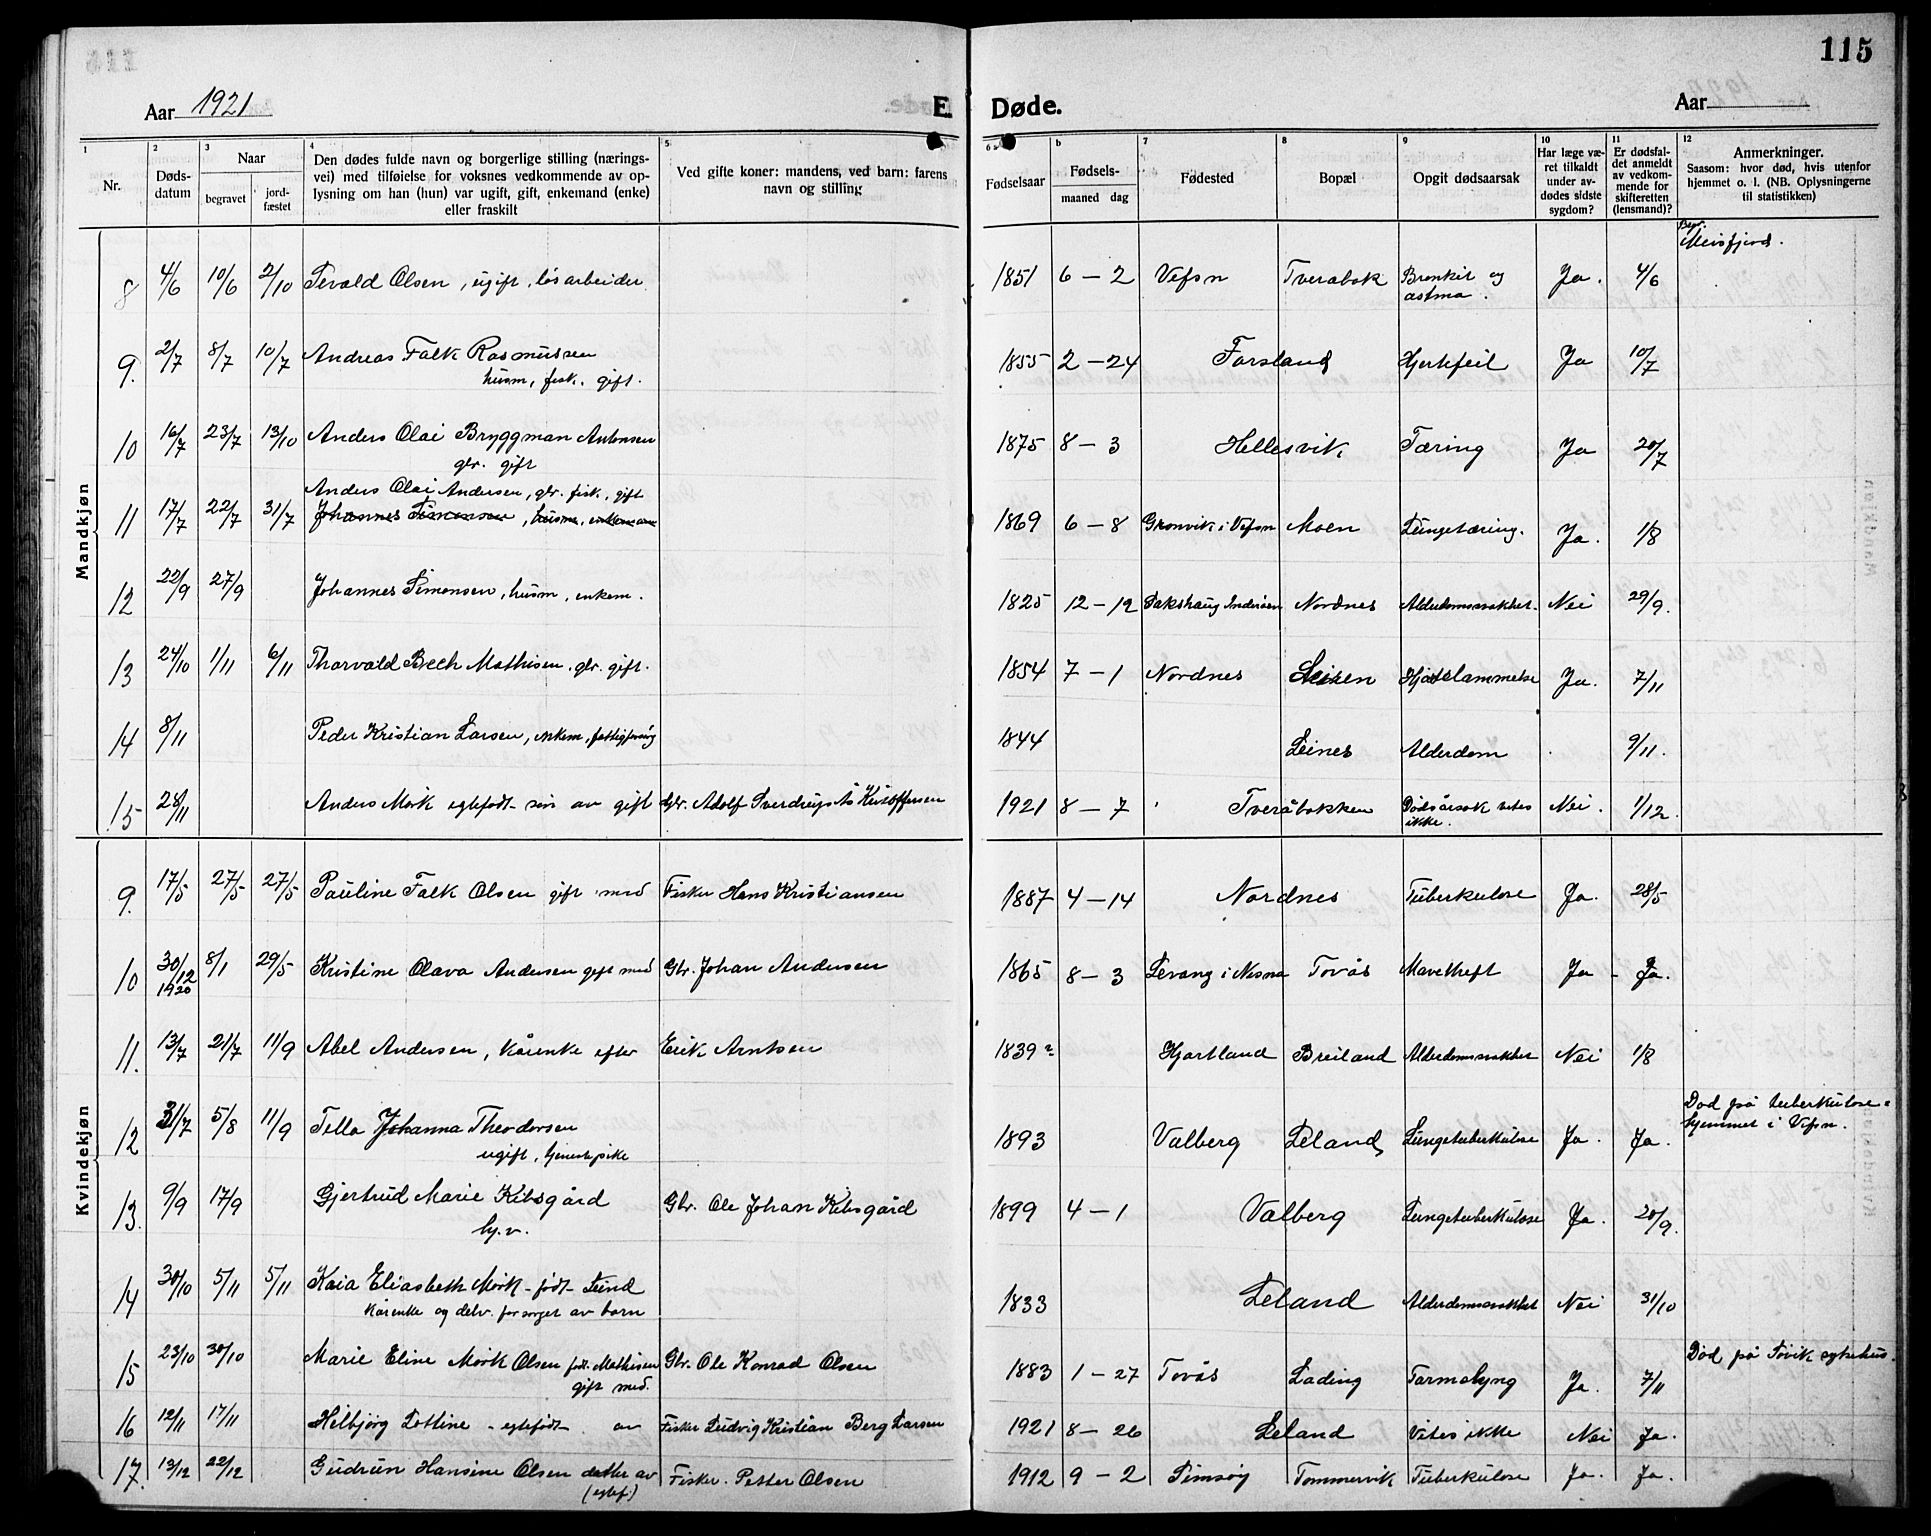 115
Aar 1921 E. Døde. Aar
1 2 3 4 5 6 a b 7 8 9 10 11 12
Nr. Døds-datum Naar begravet jord-fæstet Den dødes fulde navn og borgerlige stilling (nærings-vei) med tilføielse for voksnes vedkommende av op-lysning om han (hun) var ugift, gift, enkemand (enke) eller fraskilt Ved gifte koner: mandens, ved barn: farens navn og stilling Fødselsaar Fødsels-maaned dag Fødested Bopæl Opgit dødsaarsak Har læge væ-ret tilkaldt under av-dødes sidste sygdom? Er dødsfal-det anmeldt av vedkom-mende for skifteretten (lensmand)? Anmerkninger. Saasom: hvor død, hvis utenfor hjemmet o. l. (NB. Oplysningerne til statistikken)
Mandkjøn
Begr. Meisfjord.
8 4/6 10/6 2/10 Tevald Olsen, ugift, løsarbeider 1851 6 – 2 Vefsn Tveråbak Bronkit og astma. Ja. 4/6
9. 2/7 8/7 10/7 Andreas Falk Rasmussen 1855 2 – 24 Forsland Hjertefeil Ja 10/7
husm, fisk. gift.
10 16/7 23/7 13/10 Anders Olai Bryggman Antonsen 1875 8 – 3 Hellesvik Tæring Ja 20/7
gbr. gift
Anders Olai Andersen, gbr. fisk., gift
11 17/7 22/7 31/7 Johannes Simonsen, husm, enkemann 1869 6 – 8 Grønvik i Vefsn Moen Lungetæring. Ja. 1/8
12 22/9 27/9 Johannes Simonsen, husm, enkem. 1825 12 – 12 Sakshaug Inderøen Nordnes Alderdomssvakhet. Nei 29/9.
13 24/10 1/11 6/11 Thorvald Bech Mathisen, gbr. gift. 1854 7 – 1 Nordnes Leinen Hjerteslammelse Ja. 7/11
14 8/11 Peder Kristian Larsen, enkem, fattigforsørg 1844 Leines Alderdom 9/11.
15 28/11 Anders Mørk egtefødt søn av gift Gbr. Adolf Sverdrup Ås Kristoffersen 1921 8 – 7 Tveråbakken Dødsårsak vites ikke. Nei. 1/12.
Kvindekjøn
9. 17/5 27/5 27/5 Pauline Falk Olsen gift med Fisker Hans Kristiansen 1887 4 – 14 Nordnes Tuberkulose Ja. 28/5
10 30/12 1920 8/1 29/5 Kristine Olava Andersen gift med Gbr. Johan Andersen 1865 8 – 3 Levang i Nesna Tovås Mavekreft Ja – Ja.
11. 13/7 21/7 11/9 Abel Andersen, kårenke efter Erik Arntsen 1839? Hjartland Breiland Alderdomssvakhet Nei 1/8
12 31/7 5/8 11/9 Tella Johanna Theodorsen 1893 Valberg Leland Lungetuberkulose Ja. Ja. Død på tuberkulose-hjemmet i Vefsn.
ugift, tjenestepike
13. 9/9 17/9 Gjertrud Marie Kibsgård Gbr. Ole Johan Kibsgård 1899 4 – 1 Valberg Lungetuberkulose Ja. 20/9.
hj.v.
14 30/10 5/11 5/11 Kaia Eliasbeth Mørk – født Lund 1833 Leland Alderdomssvakhet Nei 31/10
kårenke og delv. forsørget av barn
15 23/10 30/10 Marie Eline Mørk Olsen født Mathisen Gbr. Ole Konrad Olsen 1883 1 – 27 Tovås Lading Tarmslyng Ja. 7/11 Død på Sövik sykehus.
gift med.
16 12/11 17/11 Hilbjørg Lottine – egtefødt av Fisker Ludvig Kristian Berg Larsen 1921 8 – 26 Leland Vites ikke Nei Ja.
17. 13/12 22/12 Gudrun Hansine Olsen datter av Fisker. Petter Olsen 1912 9 – 2 Simsøy Tommervik Tuberkulose Ja. Ja.
(egtef.)